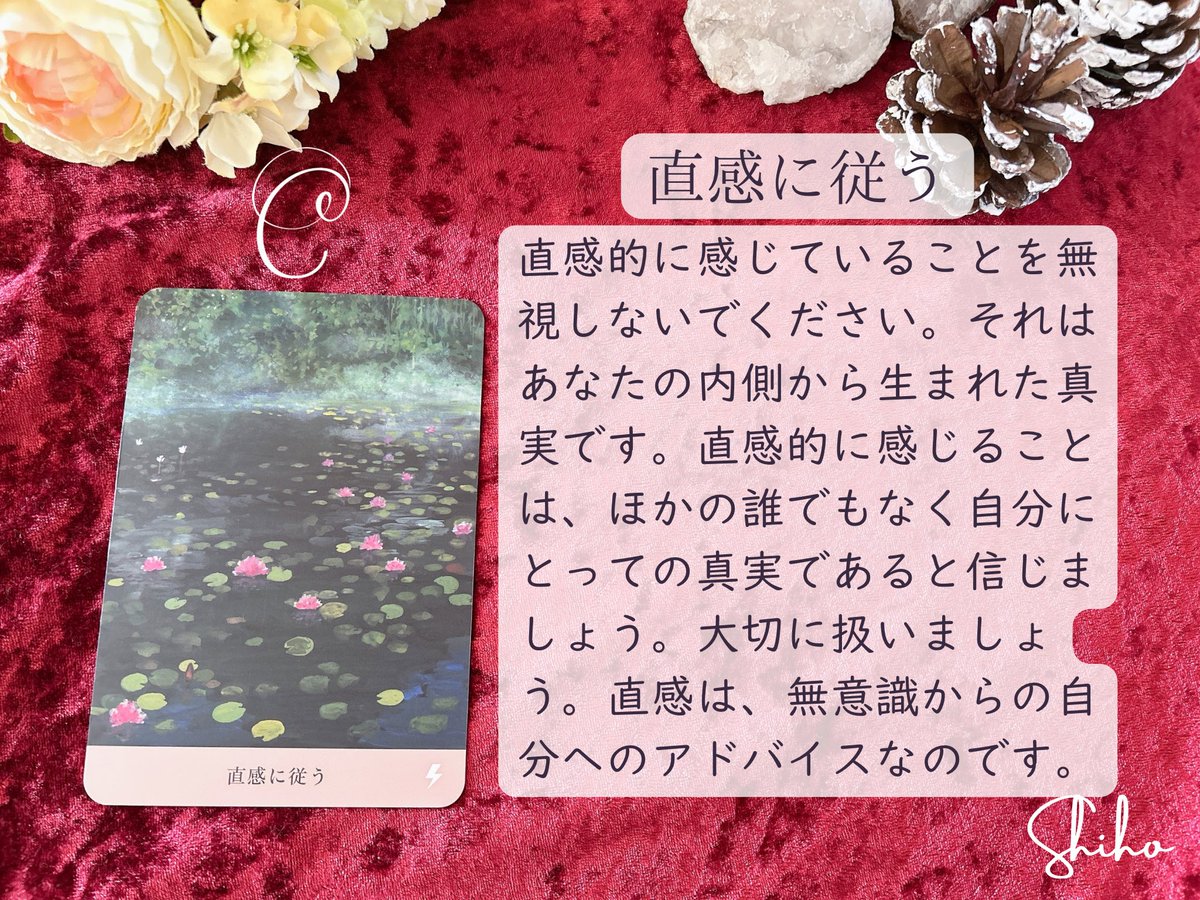 C
直感に従う
直感的に感じていることを無
視しないでください。それは
あなたの内側から生まれた真
実です。直感的に感じること
は、ほかの誰でもなく自分に
とっての真実であると信じま
しょう。大切に扱いましょ
う。直感は、無意識からの自
分へのアドバイスなのです。
直感に従う
Shiho